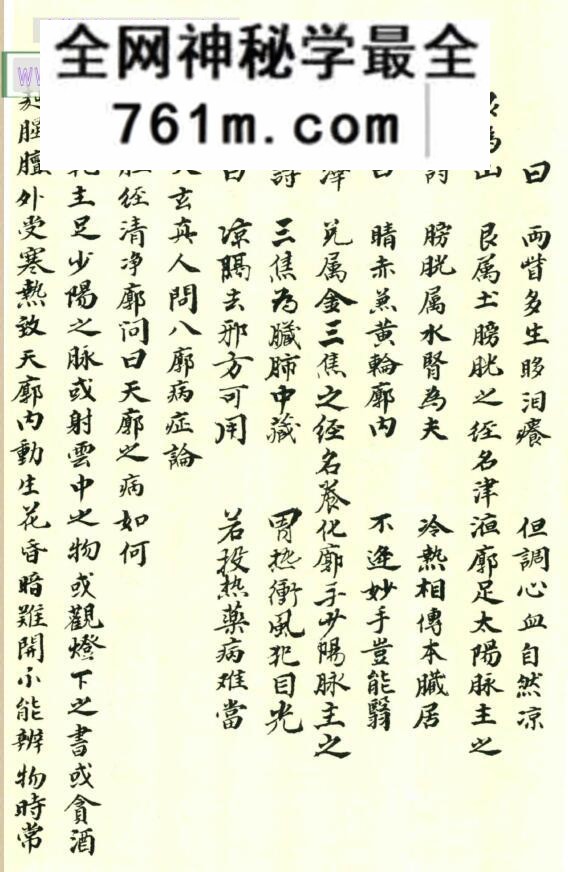 全网神秘学最全
761m.com
曰 兩眥多生眵泪癢 但調心血自然凉
為山 艮属土膀胱之经名津液廓足太陽脉主之
詩 膀胱属水腎為夫 冷熱相傳本臟居
曰 睛赤兼黄輪廓内 不逢妙手豈能醫
澤 兑属金三焦之经名養化廓手少陽脉主之
詩 三焦為臟肺中藏 胃热衝風犯目光
曰 凉膈去邪方可用 若投热藥病难當
玄真人問八廓病症論
经清净廓问曰天廓之病如何
主足少陽之脉或射雲中之物或觀燈下之書或貪酒
腥膻外受寒熱致天廓内動生花昏暗難開不能辨物時常